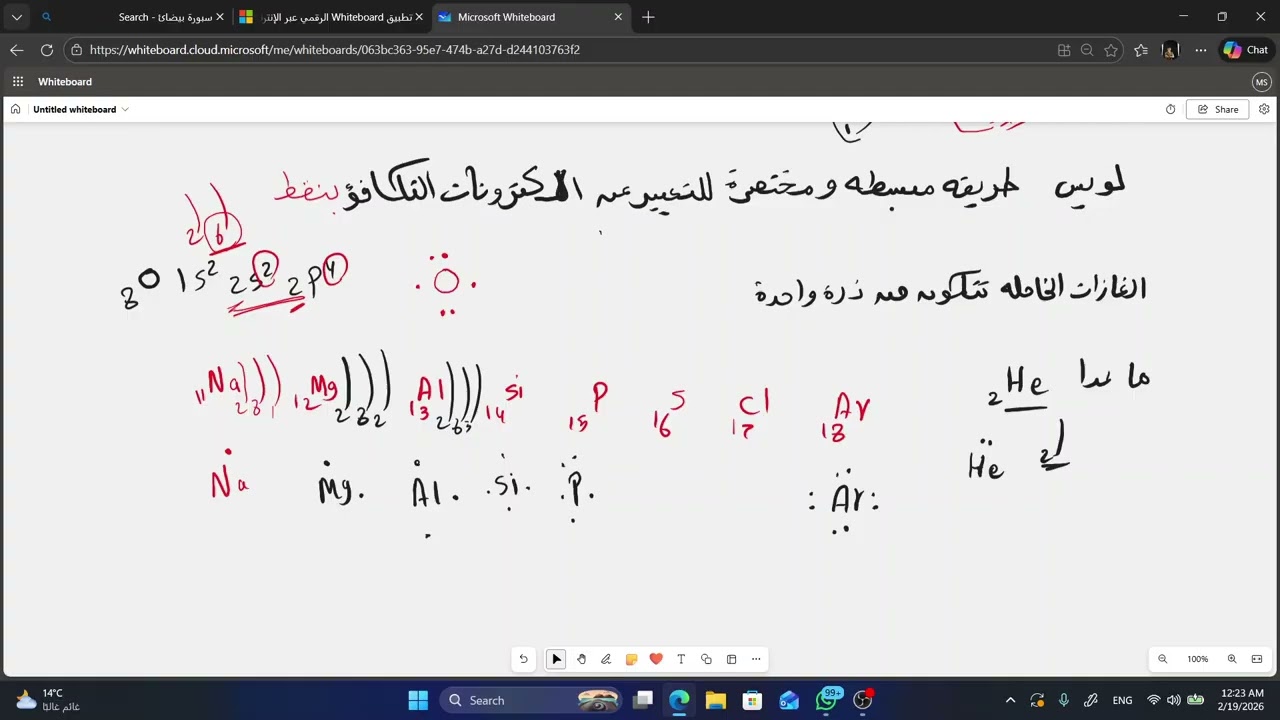 سبورة بيضائ - Search
تطبيق Whiteboard الرقمي عبر الإنتر
Microsoft Whiteboard
https://whiteboard.cloud.microsoft/me/whiteboards/063bc363-95e7-474b-a27d-d244103763f2
Chat
Whiteboard
MS
Untitled whiteboard
Share
لويس طريقه مبسطه ومختصرة للتعبير عن الكترونات التكافؤ بنقط
2 6
8 O 1s² 2s² 2p⁴
O
الغازات الخامله تتكون من ذرة واحدة
ما عدا 2 He
11 Na 2 8 1 12 Mg 2 8 2 13 Al 2 8 3 14 Si 15 P 16 S 17 Cl 18 Ar
He 2
Na Mg Al Si P Ar
100%
14°C
غائم غالبًا
Search
99+
ENG
12:23 AM
2/19/2026